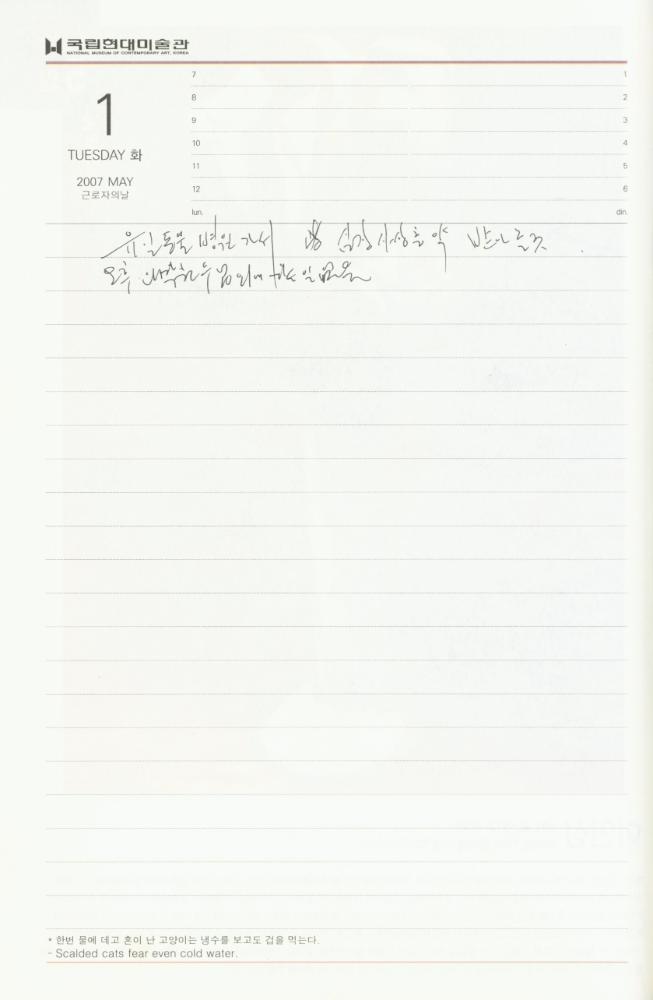 국립현대미술관
NATIONAL MUSEUM OF CONTEMPORARY ART, KOREA
1
TUESDAY 화
2007 MAY
근로자의날
7
8
9
10
11
12
lun.
1
2
3
4
5
6
din.
유일동물병원 가서 심장사상충약 받아올것
오후 외에 하는일 없음
* 한번 물에 데고 혼이 난 고양이는 냉수를 보고도 겁을 먹는다.
- Scalded cats fear even cold water.